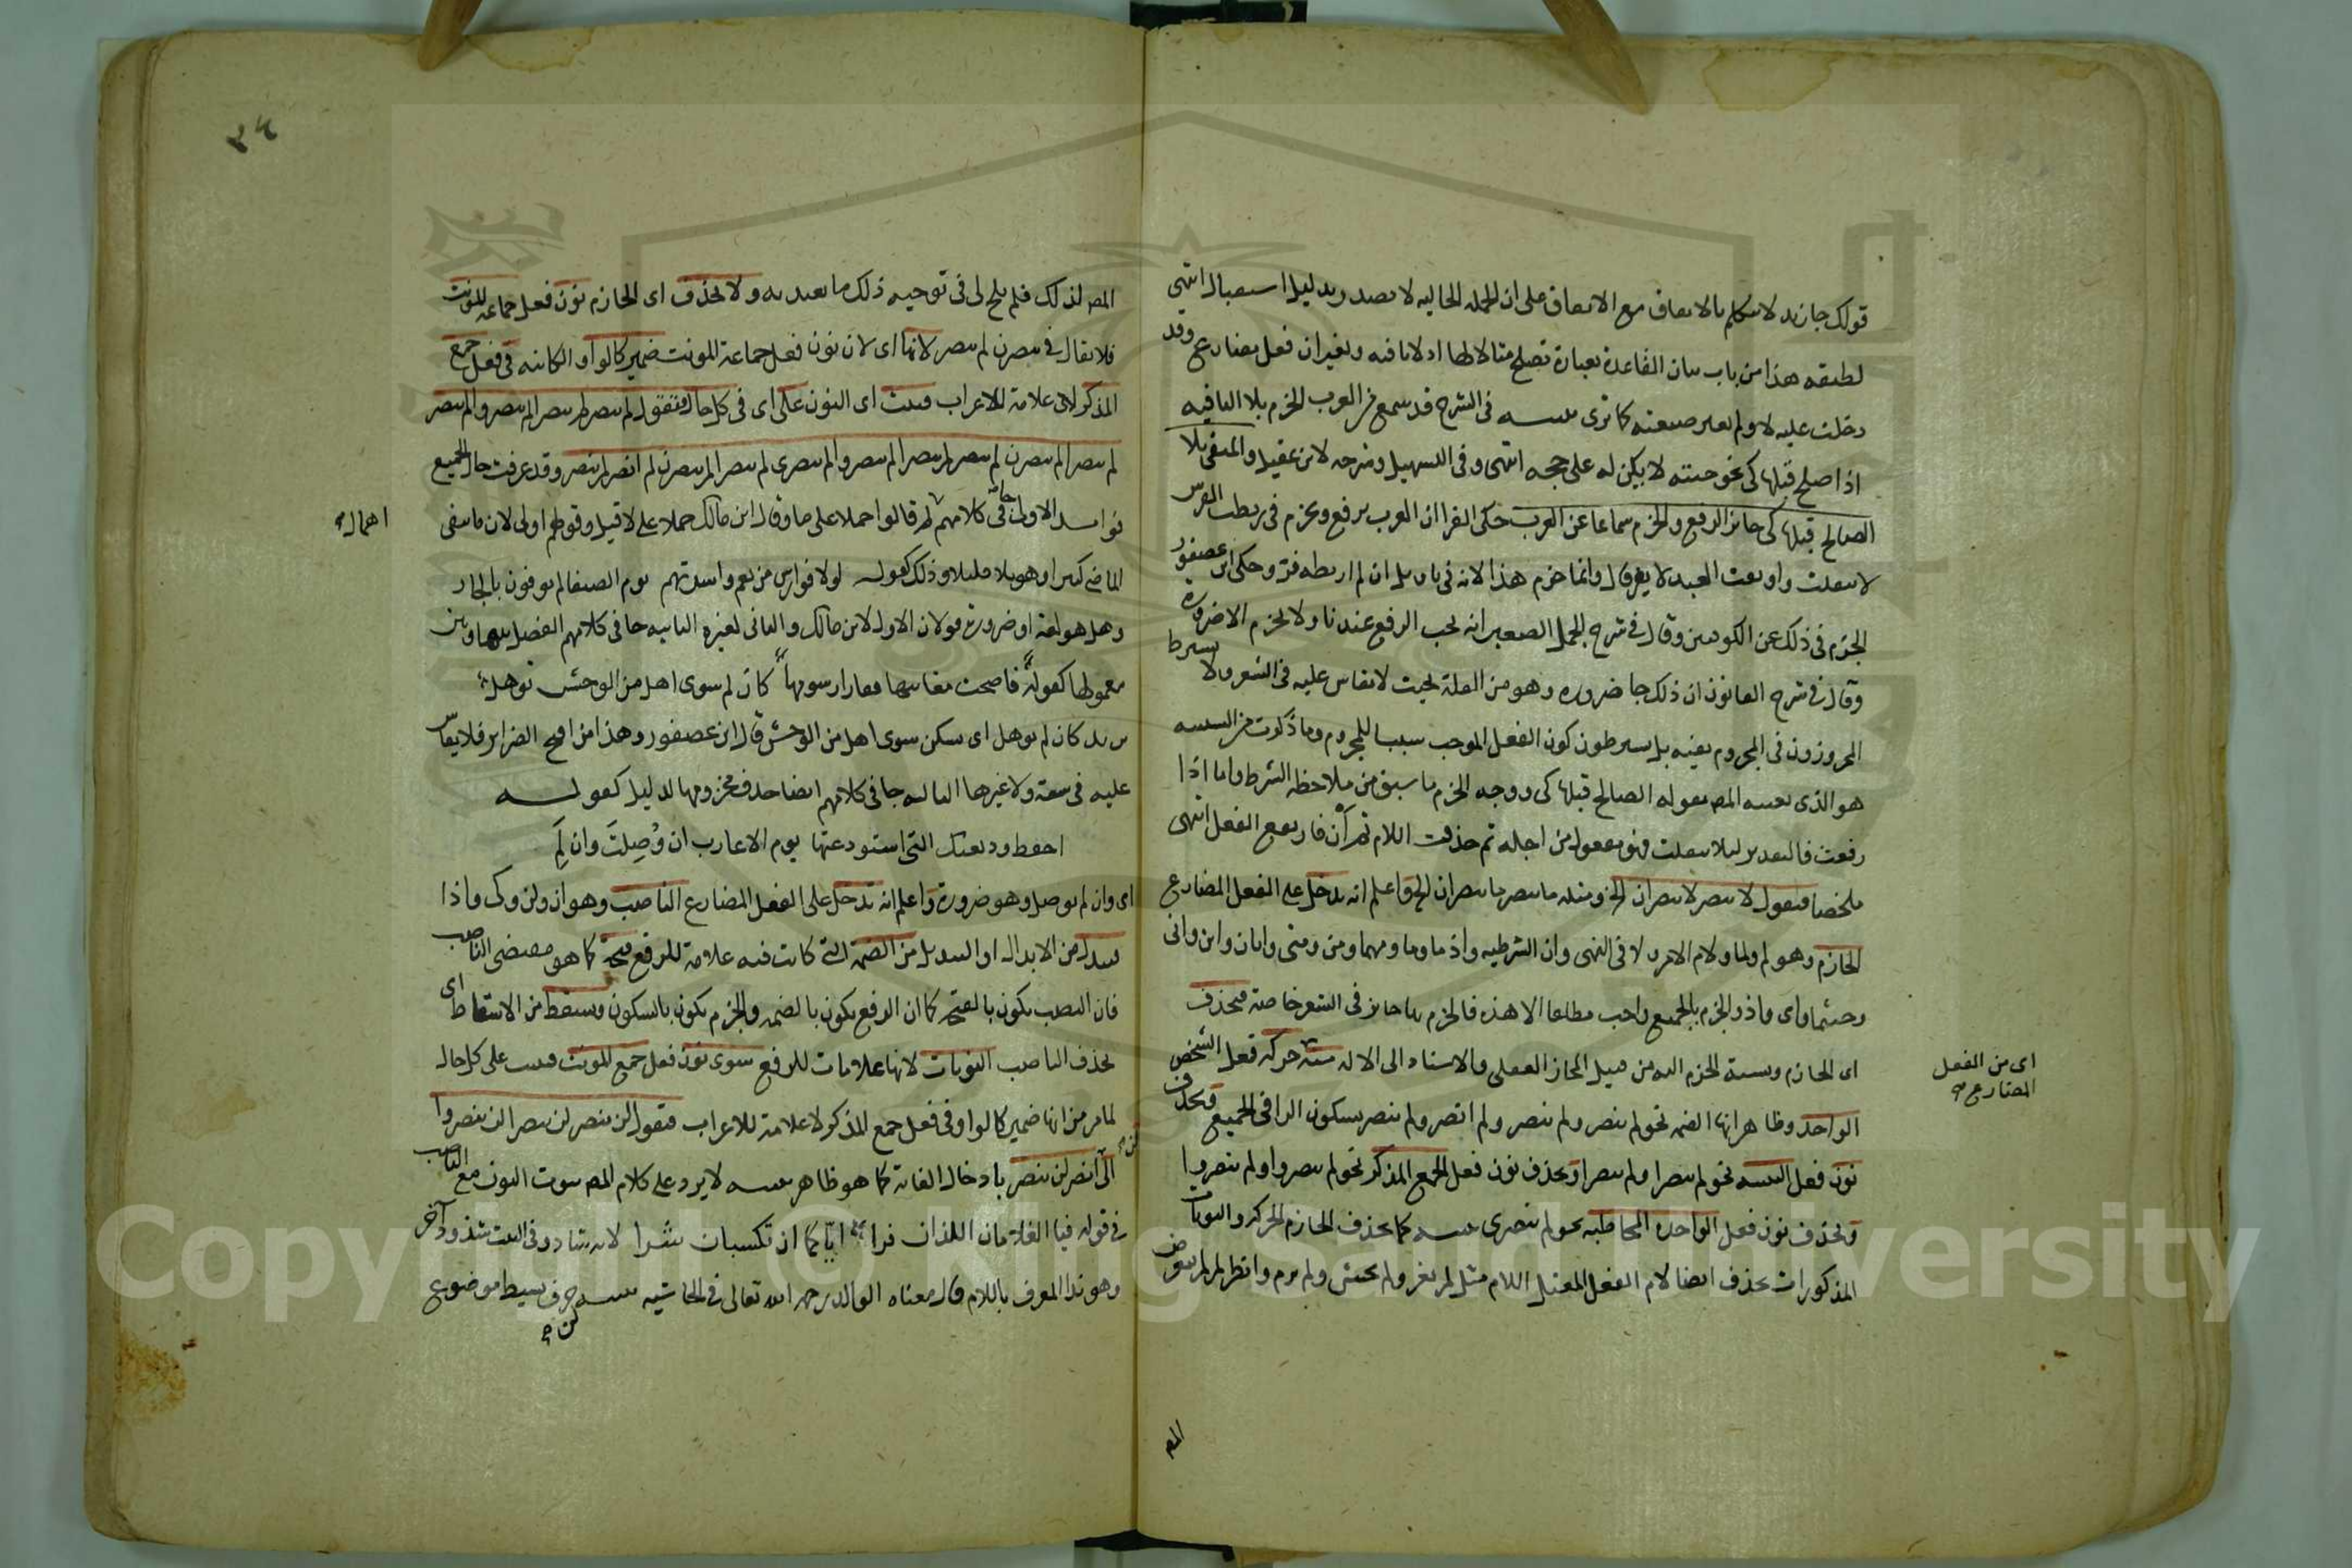 قولك جا زيد لا يتكلم بالاتفاق مع الاتفاق على ان الجملة الحالية لا تصدر بدليل استقبال انتهى
لطيفه هذا من باب بيان القاعدة بعبارة تصلح مثالا لها اذ لا نافيه ويغيران فعل مضارع وقد
دخلت عليه لا ولم يغير صيغته كما ترى تنبيه في الشرح قد سمع من العرب الجزم بلا النافيه
اذا صلح قبلها كي نحو جئته لا يكن له على حجة انتهى وفي التسهيل وشرحه لابن عقيل والمنفي بلا
الصالح قبلها كي جائز الرفع والجزم سماعا عن العرب حكى الفرا ان العرب ترفع وتجزم في ربطت الفرس
لا ينفلت واوثقت العبد لا يفر قال وانما جزم هذا لانه في تاويل ان لم اربطه فر وحكى ابن عصفور
الجزم في ذلك عن الكوفيين وقال في شرح الجمل الصغير انه يجب الرفع عندنا ولا يجزم الا ضرورة
وقال في شرح القانون ان ذلك جا ضروره وهو من القلة بحيث لا يقاس عليه في الشعر ولا يشترط
المجوزون في المجزوم بعينه بل يشترطون كون الفعل الموجب سببا للمجزوم وما ذكرت من السببيه
هو الذي يعنيه المص بقوله الصالح قبلها كي ووجه الجزم ما سبق من ملاحظة الشرط واما اذا
رفعت فالتقدير ليلا ينفلت فهو مفعول من اجله ثم حذفت اللام ثم ان فارتفع الفعل انتهى
ملخصا فتقول لا ينصر لا ينصران الخ ومثله ما ينصر ما ينصران الخ واعلم انه يدخل على الفعل المضارع
الجازم وهو لم ولما ولام الامر ولا في النهي وان الشرطيه واذ ما وما ومهما ومن ومتى وايان واين وانى
وحيثما واي واذ والجزم بالجميع واجب مطلقا الا هذه فالجزم بها جائز في الشعر خاصة فيحذف
اي الجازم ونسبة الجزم اليه من قبيل المجاز العقلي والاسناد الى الالة منه حركة فعل الشخص
اي من الفعل
المضارع
الواحد وظاهر انها الضمه نحو لم ينصر ولم تنصر ولم انصر ولم ننصر بسكون الرا في الجميع ويحذف
نون فعل التثنيه نحو لم ينصرا ولم تنصرا ويحذف نون فعل الجمع المذكر نحو لم ينصروا ولم تنصروا
ويحذف نون فعل الواحدة المخاطبه نحو لم تنصري تنبيه كما يحذف الجازم الحركه والنونات
المذكورات يحذف ايضا لام الفعل المعتل اللام مثل لم يغز ولم يخش ولم يرم وانظر لم لم يتعرض
المص
٣٤
المص لذلك فلم يلح لي في توجيه ذلك ما يعتد به ولا يحذف اي الجازم نون فعل جماعة المونث
فلا يقال في ينصرن لم ينصر لانها اي لان نون فعل جماعة المونث ضمير كالواو الكائنه في فعل جمع
المذكر لا هي علامة للاعراب فثبت اي النون على اي في كل حال فتقول لم ينصر لم ينصرا لم ينصروا لم تنصر
لم تنصرا لم ينصرن لم تنصر لم تنصرا لم تنصروا لم تنصري لم تنصرا لم تنصرن لم انصر لم ننصر وقد عرفت حال الجميع
فوائد الاولى جا في كلامهم لم قالوا حملا على ما وقال ابن مالك حملا على لا قيل وقولهم اولى لان ما ينفى
اهمال
الماضي كثيرا وهو بلا قليلا وذلك كقوله لولا فوارس من نعم واسرتهم يوم الصليفا لم يوفون بالجار
وهل هو لغة او ضرورة قولان الاول لابن مالك والثاني لغيره الثانيه جا في كلامهم الفصل بينها وبين
معمولها كقوله فاضحت مغانيها قفارا رسومها كان لم سوى اهل من الوحش توهل
يريد كان لم توهل اي تسكن سوى اهل من الوحش قال ابن عصفور وهذا من اقبح الضراير فلا يقاس
عليه في سعة ولا غيرها الثالثه جا في كلامهم ايضا حذف مجزومها لدليل كقوله
احفظ وديعتك التي استودعتها يوم الاعازب ان وُصِلتَ وان لَمِ
اي وان لم توصل وهو ضرورة واعلم انه يدخل على الفعل المضارع الناصب وهو ان ولن وكي واذا
فيبدل من الابدال او التبديل من الضمة التي كانت فيه علامة للرفع فتحة كما هو مقتضى الناصب
فان النصب يكون بالفتحة كما ان الرفع يكون بالضمه والجزم يكون بالسكون ويسقط من الاسقاط اي
يحذف الناصب النونات لانها علامات للرفع سوى نون فعل جمع المونث فثبت على كل حال
لما مر من انها ضمير كالواو في فعل جمع المذكر لا علامة للاعراب فتقول لن ينصر لن ينصرا لن ينصروا
الى لن انصر لن ننصر بادخال الغاية كما هو ظاهر تنبيه لا يرد على كلام المص ثبوت النون مع الناصب
في قوله فيا الغلامان اللذان فرا اياكما ان تكسبان شرا لانه شاذ وفي البيت شذوذ آخر
وهو ندا المعرف باللام قال معناه الوالد رحمه الله تعالى في الحاشيه تنبيه لن حرف بسيط موضوع